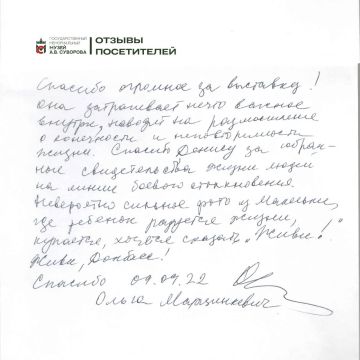 ГОСУДАРСТВЕННЫЙ
МЕМОРИАЛЬНЫЙ
МУЗЕЙ
А.В. СУВОРОВА
ОТЗЫВЫ
ПОСЕТИТЕЛЕЙ
Спасибо огромное за выставку!
Она затрагивает нечто важное
внутри, наводит на размышления
о конечности и неповторимости
жизни. Спасибо Денису за собран-
ные свидетельства жизни людей
на линии боевого столкновения.
Невероятно сильное фото из
где ребенок радуется жизни,
купается, хочется сказать, "Живи!"
Живи, Донбасс!
Спасибо 09.09.22
Ольга Марцинкевич